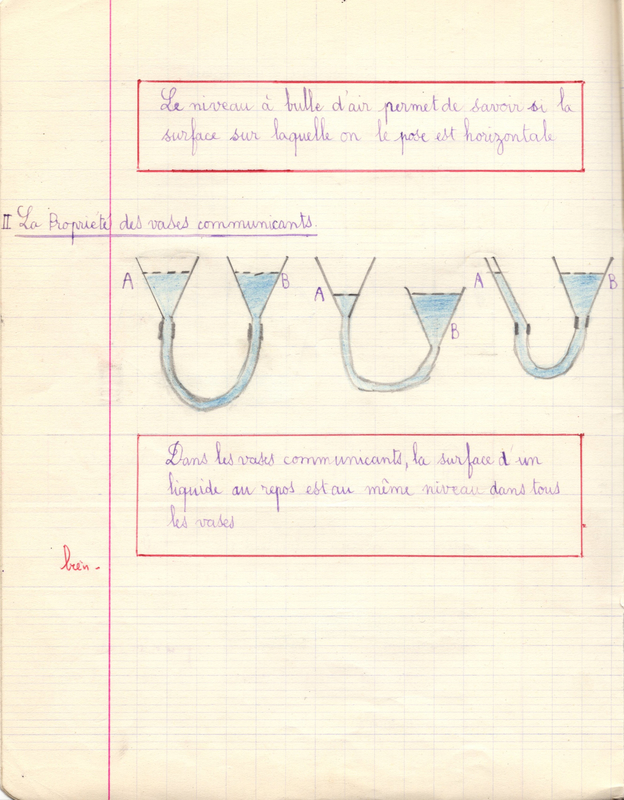 Le niveau à bulle d'air permet de savoir si la
surface sur laquelle on le pose est horizontale
II La Propriété des vases communicants.
A B A B A B
Dans les vases communicants, la surface d'un
liquide au repos est au même niveau dans tous
les vases
bien.